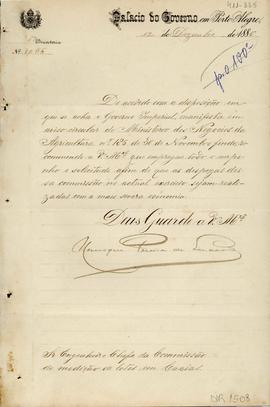 411-335
Palacio do Governo, em Porto Alegre,
12 de Dezembro de 188
Directoria
Nº
De accordo com a disposição em
que se acha o Governo Imperial, manifesta em
aviso circular do Ministerio dos Negocios da
Agricultura, nº 185 de 30 de Novembro findo, re-
commendo a Vª Mcê que empregue todo o empe-
nho e solicitude afim de que as despezas des-
sa commissão no actual exercicio sejam reali-
zadas com a mais severa economia.
Deus Guarde a Vª Mcê
Henrique Pereira de Lucena
Sr. Engenheiro Chefe da Commissão
de medição de lotes em Caxias.
DIR 1508